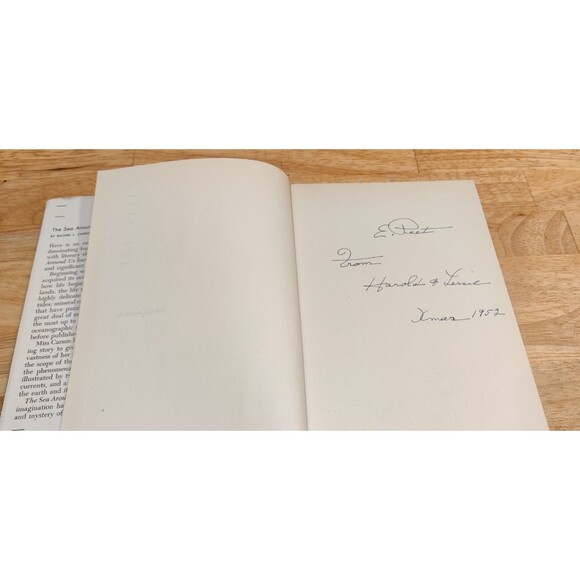 The Sea Arou
BY RACHEL L. CARSO
Here is an
illuminating
with literary
Around Us
and significan
Beginning
acquired its
how life bega
lands: the life
highly delicate
tides; mineral
that have
great deal of
the most up to
oceanographic
before publishe
Miss Carson
ing story to give
vastness of her
the scope of the
the phenomena
illustrated by
currents, and a
the earth and
The Sea Arou
imagination ha
and mystery of
E. Peet
From
Harold &
Xmas 1952